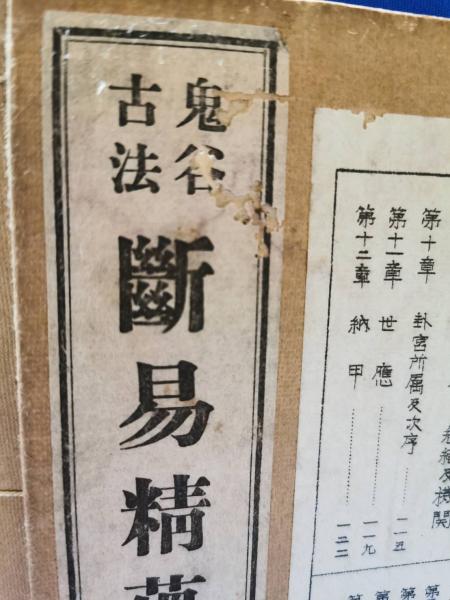 鬼谷
古法
斷易精蘊
第十章 卦宮所属及次序………一一五
第十一章 世應………一一九
第十二章 納甲………一二二